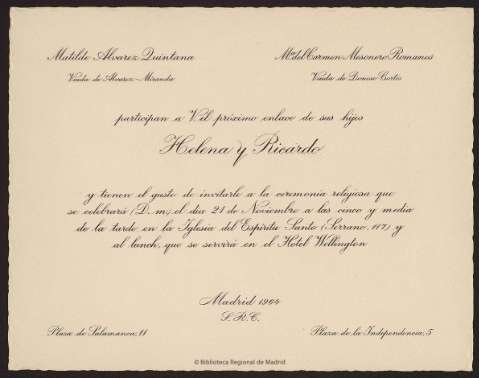 Matilde Alvarez Quintana
Viuda de Alvarez-Miranda
Mª del Carmen Mesonero Romanos
Viuda de Donoso Cortés
participan a Vd. próximo enlace de sus hijos
Helena y Ricardo
y tienen el gusto de invitarle a la ceremonia religiosa que
se celebrará (D. m.) el día 21 de Noviembre a las cinco y media
de la tarde en la Iglesia del Espíritu Santo (Serrano, 117) y
al lunch, que se servirá en el Hotel Wellington
Madrid 1964
S.R.C.
Plaza de Salamanca, 11
Plaza de la Independencia, 5
© Biblioteca Regional de Madrid